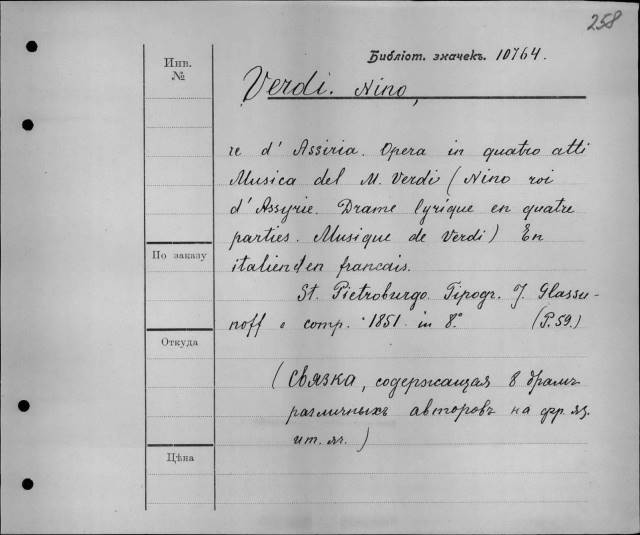 258
Библіот. значекъ. 10764.
Инв.
№
Verdi. Nino,
re d' Assiria. Opera in quatro atti
Musica del M. Verdi (Nino roi
d'Assyrie. Drame lyrique en quatre
parties. Musique de Verdi) En
По заказу
italien d en francais.
St. Pietroburgo. Tipogr. J. Glassu-
noff e comp. 1851. in 8.° (P. 59.)
Откуда
(Связка, содержащая 8 драмъ
различныхъ авторовъ на фр. яз.
ит. яз.)
Цѣна